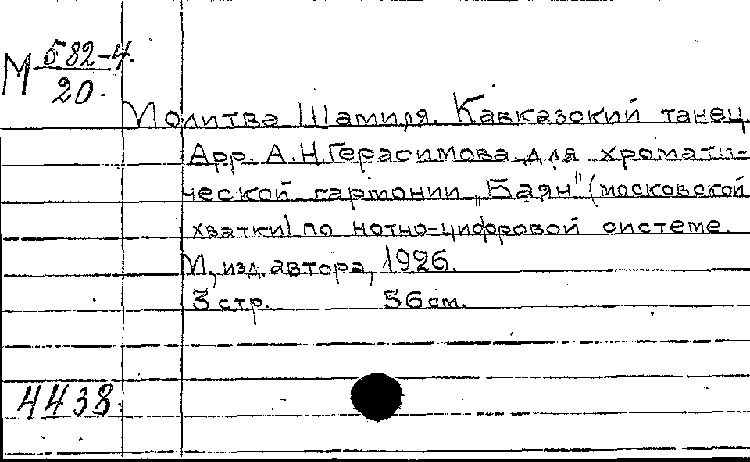 М 582-4.
20.
Молитва Шамиля. Кавказский танец.
Арр. А.Н.Герасимова для хромати-
ческой гармонии „Баян" (московской
хватки) по нотно-цифровой системе.
М, изд. автора, 1926.
3 стр. 36 см.
4438